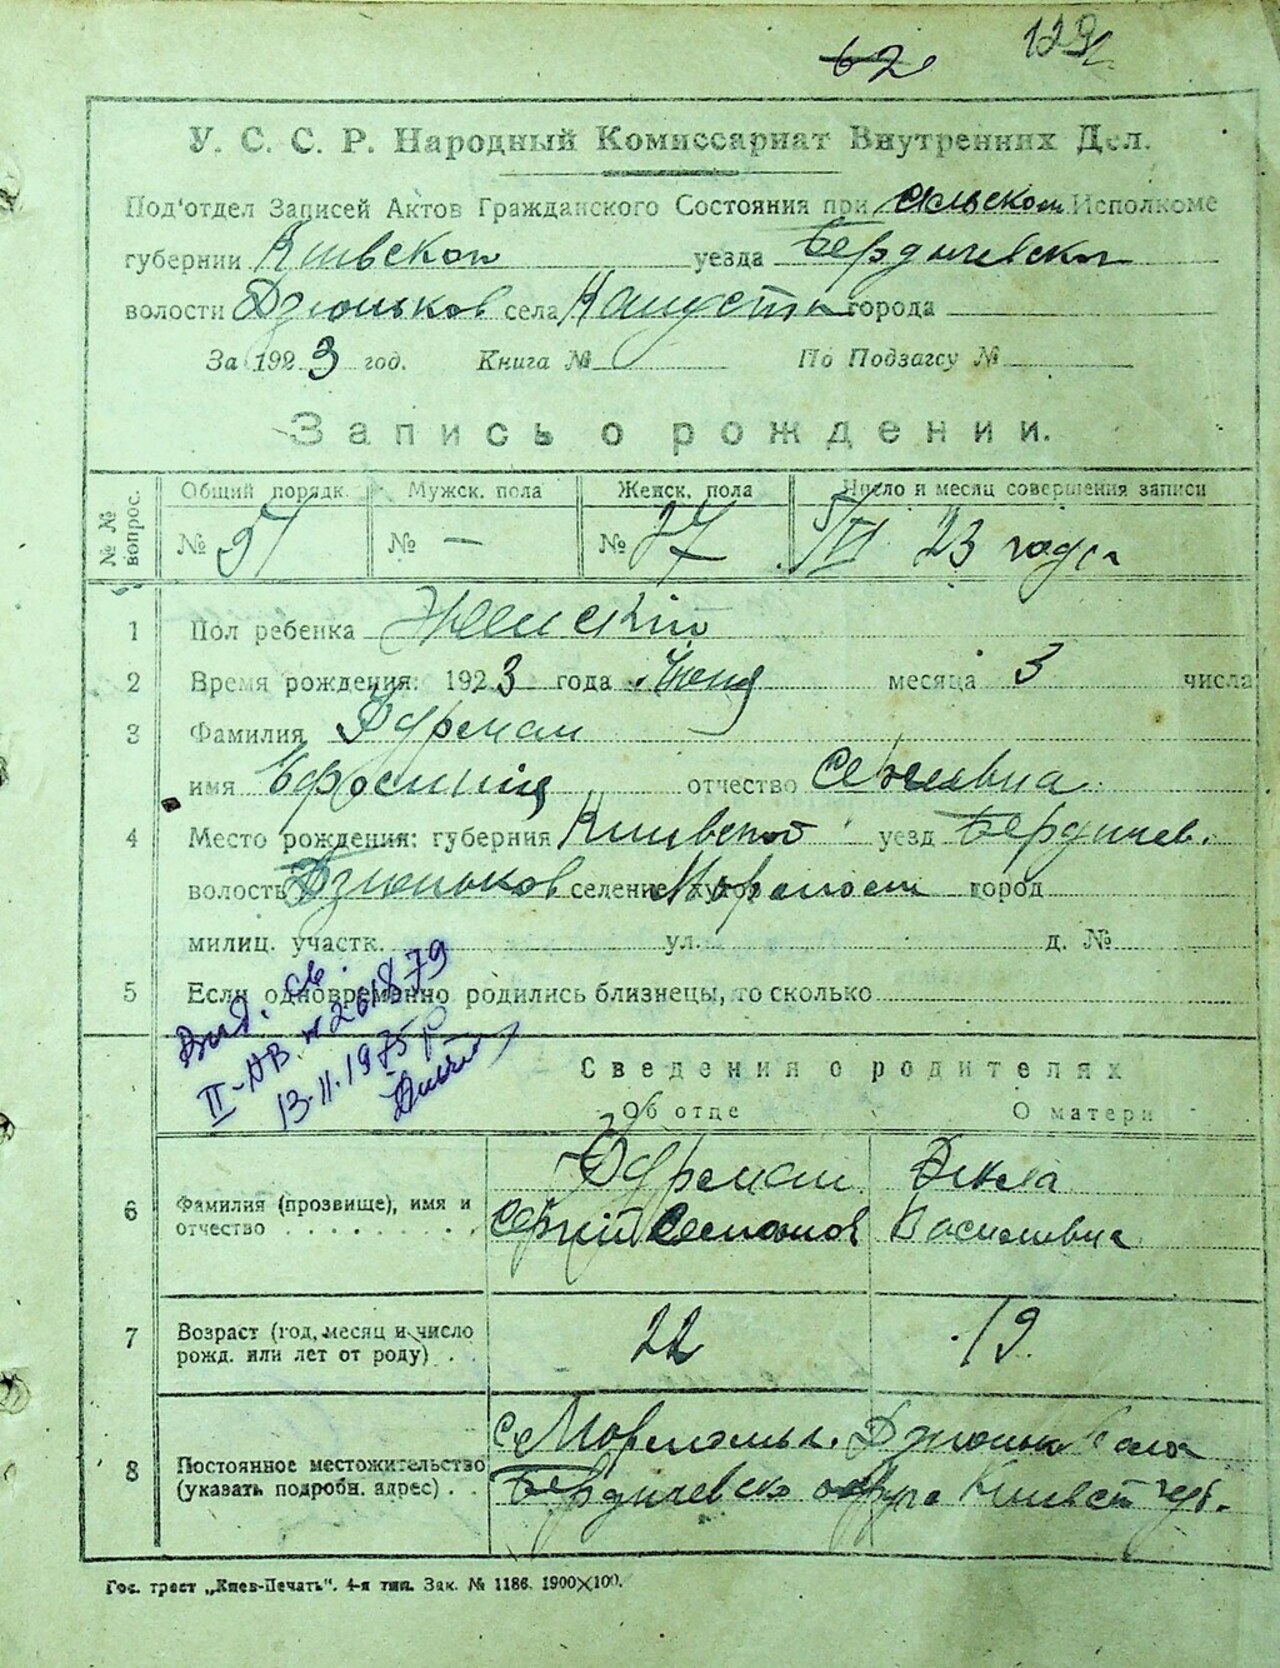 129
62
У. С. С. Р. Народный Комиссариат Внутренних Дел.
Под'отдел Записей Актов Гражданского Состояния при сельском Исполкоме
губернии Киевской уезда Бердичевско
волости Дзюньков села Капусты города
За 1923 год. Книга № По Подзагсу №
Запись о рождении.
№ № вопрос.
Общий порядк. Мужск. пола Женск. пола Число и месяц совершения записи
№ № — № 27 5/VI 23 года
1 Пол ребенка Женский
2 Время рождения: 1923 года Июня месяца 3 числа
3 Фамилия Фурман
имя Ефросиния отчество
4 Место рождения: губерния Киевской уезд Бердичев.
волость Дзюньков селение хутор город
милиц. участк. ул. д. №
5 Если одновременно родились близнецы, то сколько
Выд. св.
II-АВ № 261879
13.11.1975 р
Сведения о родителях
Об отце О матери
6 Фамилия (прозвище), имя и отчество
Фурман
Сергій Семенов
Текла
Василевна
7 Возраст (год, месяц и число рожд. или лет от роду) 22 19
8 Постоянное местожительство (указать подробн. адрес)
с.
Бердичевско округа Киевск губ.
Гос. трест „Киев-Печать". 4-я тип. Зак. № 1186. 1900×100.